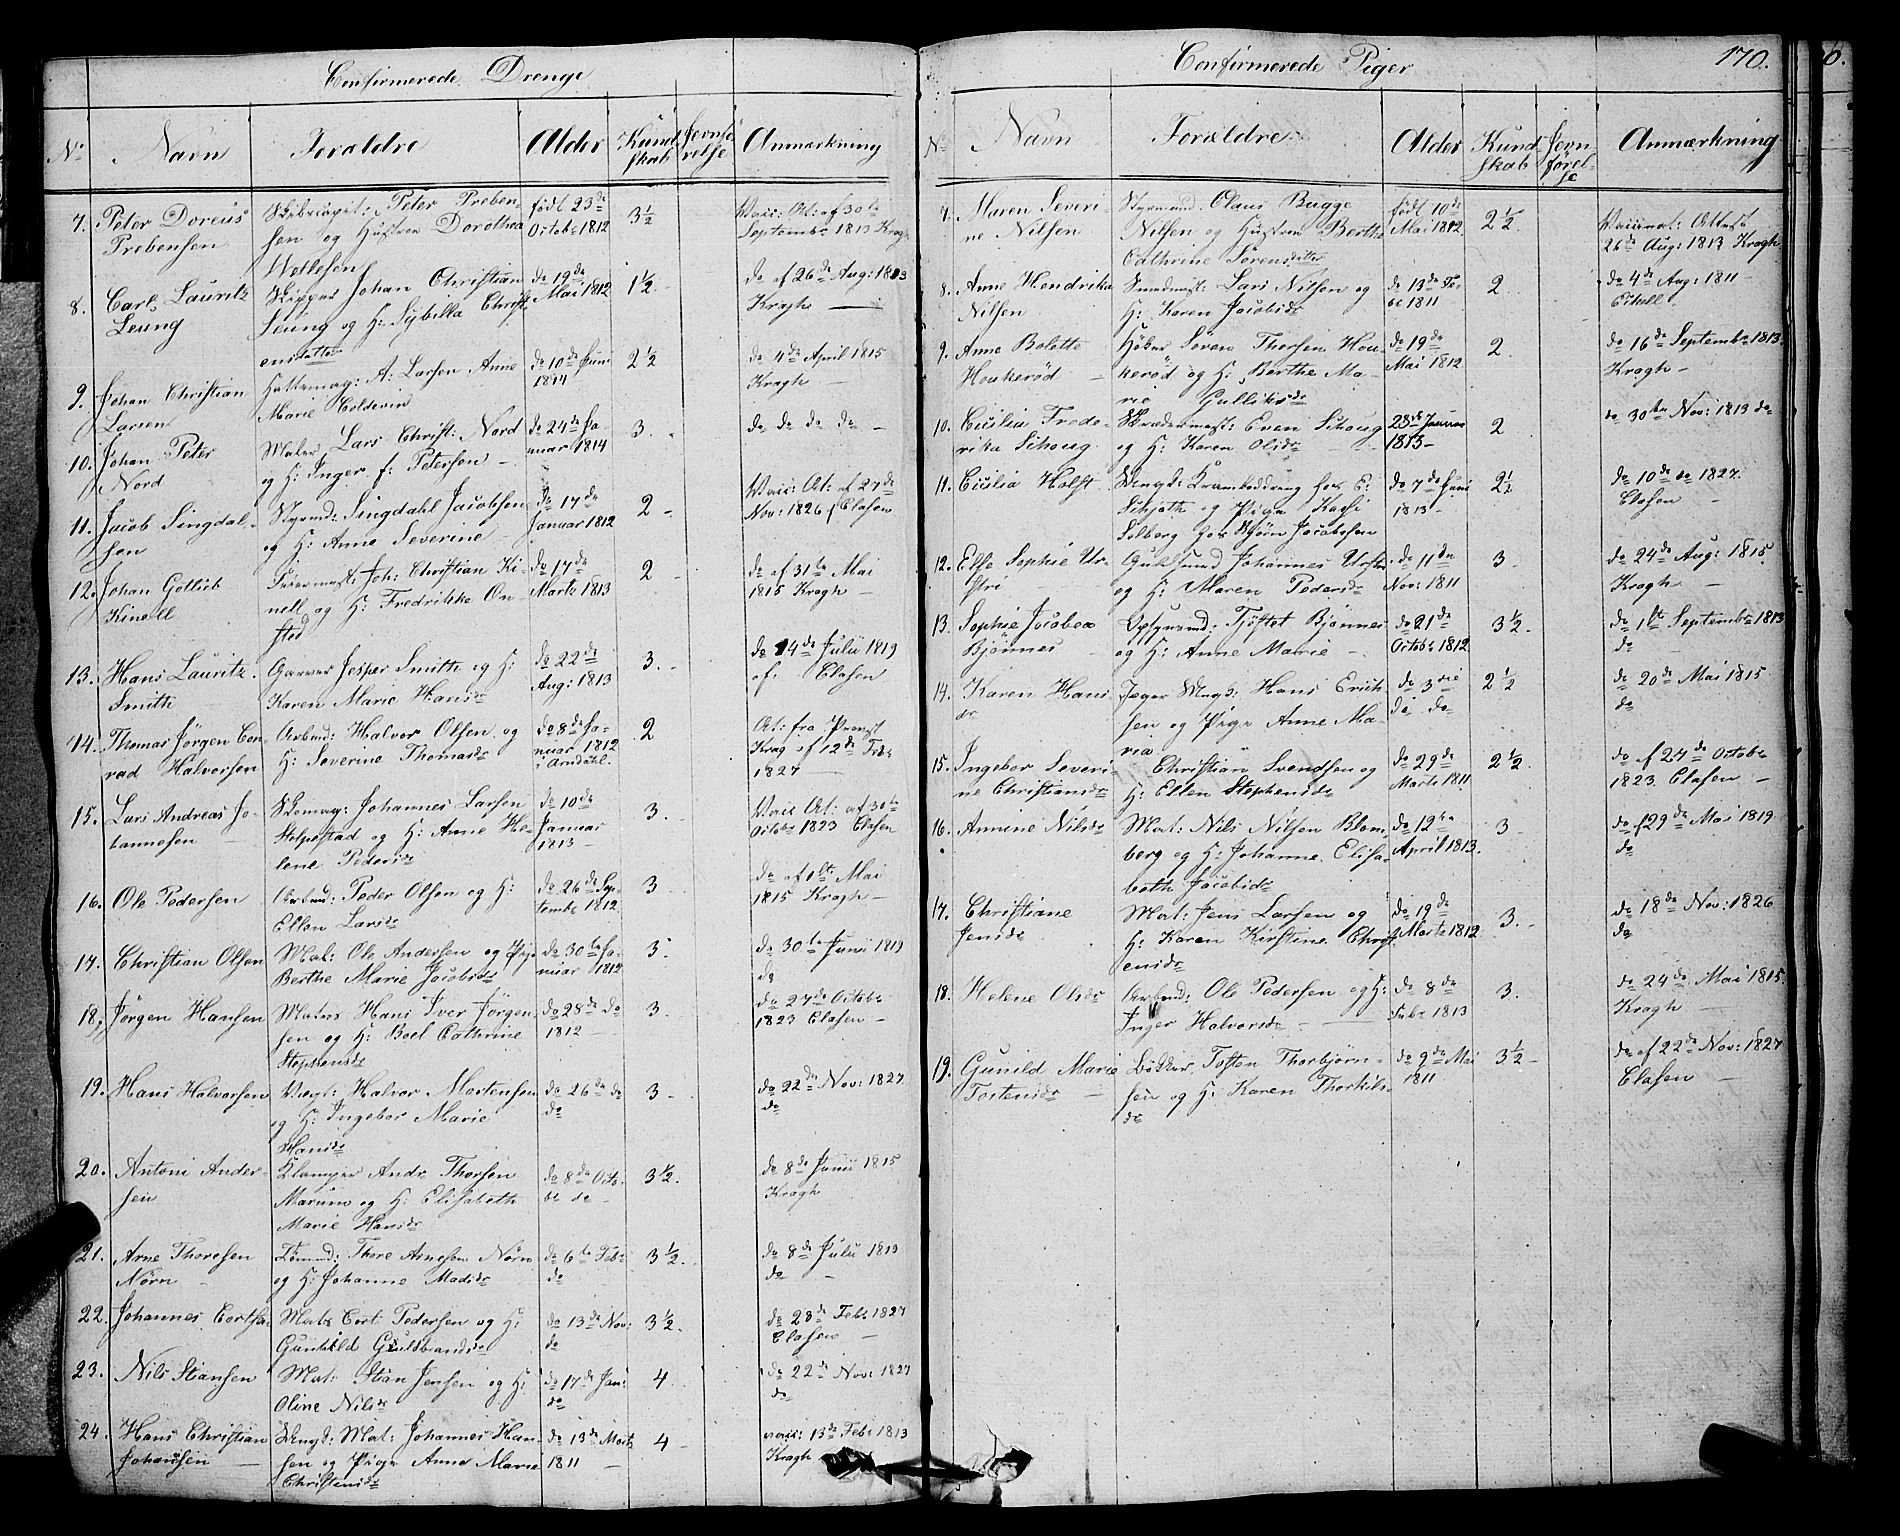 Confirmerede Drenge
No Navn Forældre Alder Kund- Jevnfö-
skab relse Anmærkning
7. Peter Doreus
Prebensen
Skibscapit: Peter Preben-
sen og Hustrue Dorothea
Wettesen
födt 23de
Octobr 1812
3½
Vacc: At: af 30te
Septembr 1813 Kragh
8. Carl Lauritz
Leung
Skipper Johan Christian
Leung og H: Sybilla Christi-
ensdatter
do 19de
Mai 1812
1½
do af 26de Aug: 1813
Kragh —
9. Johan Christian
Larsen
Hattemag: A: Larsen Anne
Marie Colderin
do 10de Juni
1814
2½
do 4de April 1815
Kragh —
10. Johan Peter
Nord
Maler Lars Christ: Nord
og H: Inger f: Petersen —
do 24de Ja-
nuar 1814
3.
do do do do —
11. Jacob Singdal-
sen
Styrmd: Singdahl Jacobsen
og H: Anne Severine
do 17de
Januar 1812
2 -
Vacc: At: af 27de
Nov: 1826 Clasen
12. Johan Gotlieb
Kinell
Joh: Christian Ki-
nell og H: Fredrikke On-
stad
do 17de
Marts 1813
2
do af 31te Mai
1815 Kragh —
13. Hans Lauritz
Smith
Garver Jesper Smith og H:
Karen Marie Hansdr
do 22de
Aug: 1813
3.
do 14de Julii 1819
af Clasen
14. Thomas Jörgen Con-
rad Halvorsen
Arbmd: Halvor Olsen og
H: Severine Thomasdr
do 8de Ja-
nuar 1812
i Arndahl.
2
At: fra Provst
Krag af 12de Feb:
1827 —
15. Lars Andreas Jo-
hannesen
Skomag: Johannes Larsen
Stelpestad og H: Anne He-
lene Pedersdr
do 10de
Januar
1813 —
3.
Vacc At: af 30te
Octobr 1823 Clasen
16. Ole Pedersen
Arbmd: Peder Olsen og H:
Ellen Larsdr
do 26de Sep-
tembr 1812
3
do af 1ste Mai
1815 Kragh —
17. Christian Olsen
Mat: Ole Andersen og Pige
Berthe Marie Jacobsdr
do 30te Ja-
nuar 1812
3
do 30te Junii 1819
do
18. Jörgen Hansen
Matros Hans Iver Jörgen-
sen og H: Boel Cathrine
Stephensdr
do 28de do
1812 —
3.
do 27de Octobr
1823 Clasen —
19. Hans Halvorsen
Vægt: Halvor Mortensen
og H: Ingebor Marie
Hansdr
do 26de do
do
3 -
do 22de Nov: 1827
do
20. Antoni Ander-
sen
Klamper Andr: Thorsen
Marum og H: Elisabeth
Marie Hansdr
do 8de Octo-
br do —
3½.
do 8de Junii 1815
Kragh
21. Arne Thoresen
Nörn —
Tömmd: Thore Arnesen Nörn
og H: Johanne Madsdr
do 6te Febr
do
3½.
do 8de Julii 1813
do —
22. Johannes Cortsen
Matr Cort Pedersen og H:
Gunhild Guldbrandsdr
do 13de Nov:
do
3½.
do 28de Febr 1827
Clasen —
23. Nils Stiansen
Mat: Stian Jensen og H:
Oline Nilsdr
do 17de Jan:
do
4.
do 22de Nov: 1827
do
24. Hans Christian
Johansen —
Ungk: Mat: Johannes Han-
sen og Pige Anne Marie
Christensdr
do 13de Marts
1811 —
4 -
vacc: 13de Febr 1813
Kragh
Confirmerede Piger 170.
No Navn Forældre Alder Kund- Jevn-
skab förel-
se Anmærkning
7. Maren Severi-
ne Nilsen
Styrmand: Claus Bugge
Nilsen og Hustrue Berthe
Cathrine Sörensdatter
födt 10de
Mai 1812.
2½.
Vaccinat: Attest
26de Aug: 1813 Kragh
8. Anne Hendrika
Nilsen
Smedmest: Lars Nilsen og
H: Karen Jacobsdr
do 13de Fe-
br 1811
2.
do 4de Aug: 1811 —
9. Anne Bolette
Houkeröd —
Höker Sören Thorsen Hou-
keröd og H: Berthe Ma-
rie Gulliksdr
do 19de
Mai 1812
2.
do 16de Septembr 1813.
Kragh —
10. Cicilia Frede-
rika Schoug
Skrædermest: Even Schoug
og H: Karen Olsdr
28de Januar
1813 —
2
do 30te Nov: 1813 do
11. Cicilia Holst
Ungk: Kramboddreng hos E:
Schjöth og Pige Kasse
Solberg hos Björn Jacobsen
do 7de Juni
1813 —
2½
do 10de do 1827.
Clasen —
12. Else Sophie Ur-
stri
Guldsmed Johannes Urstri
og H: Maren Pedersdr
do 11de
Nov: 1811
3.
do 24de Aug: 1815.
Kragh —
13. Sophie Jacobea
Bjönnes —
Opsynsmd: Tjöstol Bjönnes
og H: Anne Marie —
do 21de
Octobr 1812
3½.
do 1ste Septembr 1813
do —
14. Karen Hans
dr
Jæger Ungk: Hans Erich-
sen og Pige Anne Ma-
ria
do 3die
do do
2½
do 20de Mai 1815.
do
15. Ingebor Severi-
ne Christiansdr
Christian Svendsen og
H: Ellen Stephensdr
do 29de
Marts 1811
2½.
do af 27de Octobr
1823. Clasen —
16. Annine Nilsdr
Mat: Nils Nilsen Blom-
berg og H: Johanne Elisa-
beth Jacobsdr
do 12te
April 1813.
3
do af 29de Mai 1819.
do
17. Christiane
Jensdr
Mat: Jens Larsen og
H: Karen Kirstine Christ-
ensdr
do 19de
Marts 1812
3.
do 18de Nov: 1826
do
18. Helene Olsdr
Arbmd: Ole Pedersen og H:
Inger Halvorsdr —
do 8de
Febr 1813
3.
do 24de Mai 1815.
Kragh —
19. Gunild Marie
Tostensdr —
Bödker Tosten Thorbjörn-
sen og H: Karen Thorkils-
dr
do 9de Mai
1811
3½ —
do af 22de Nov: 1827
Clasen —